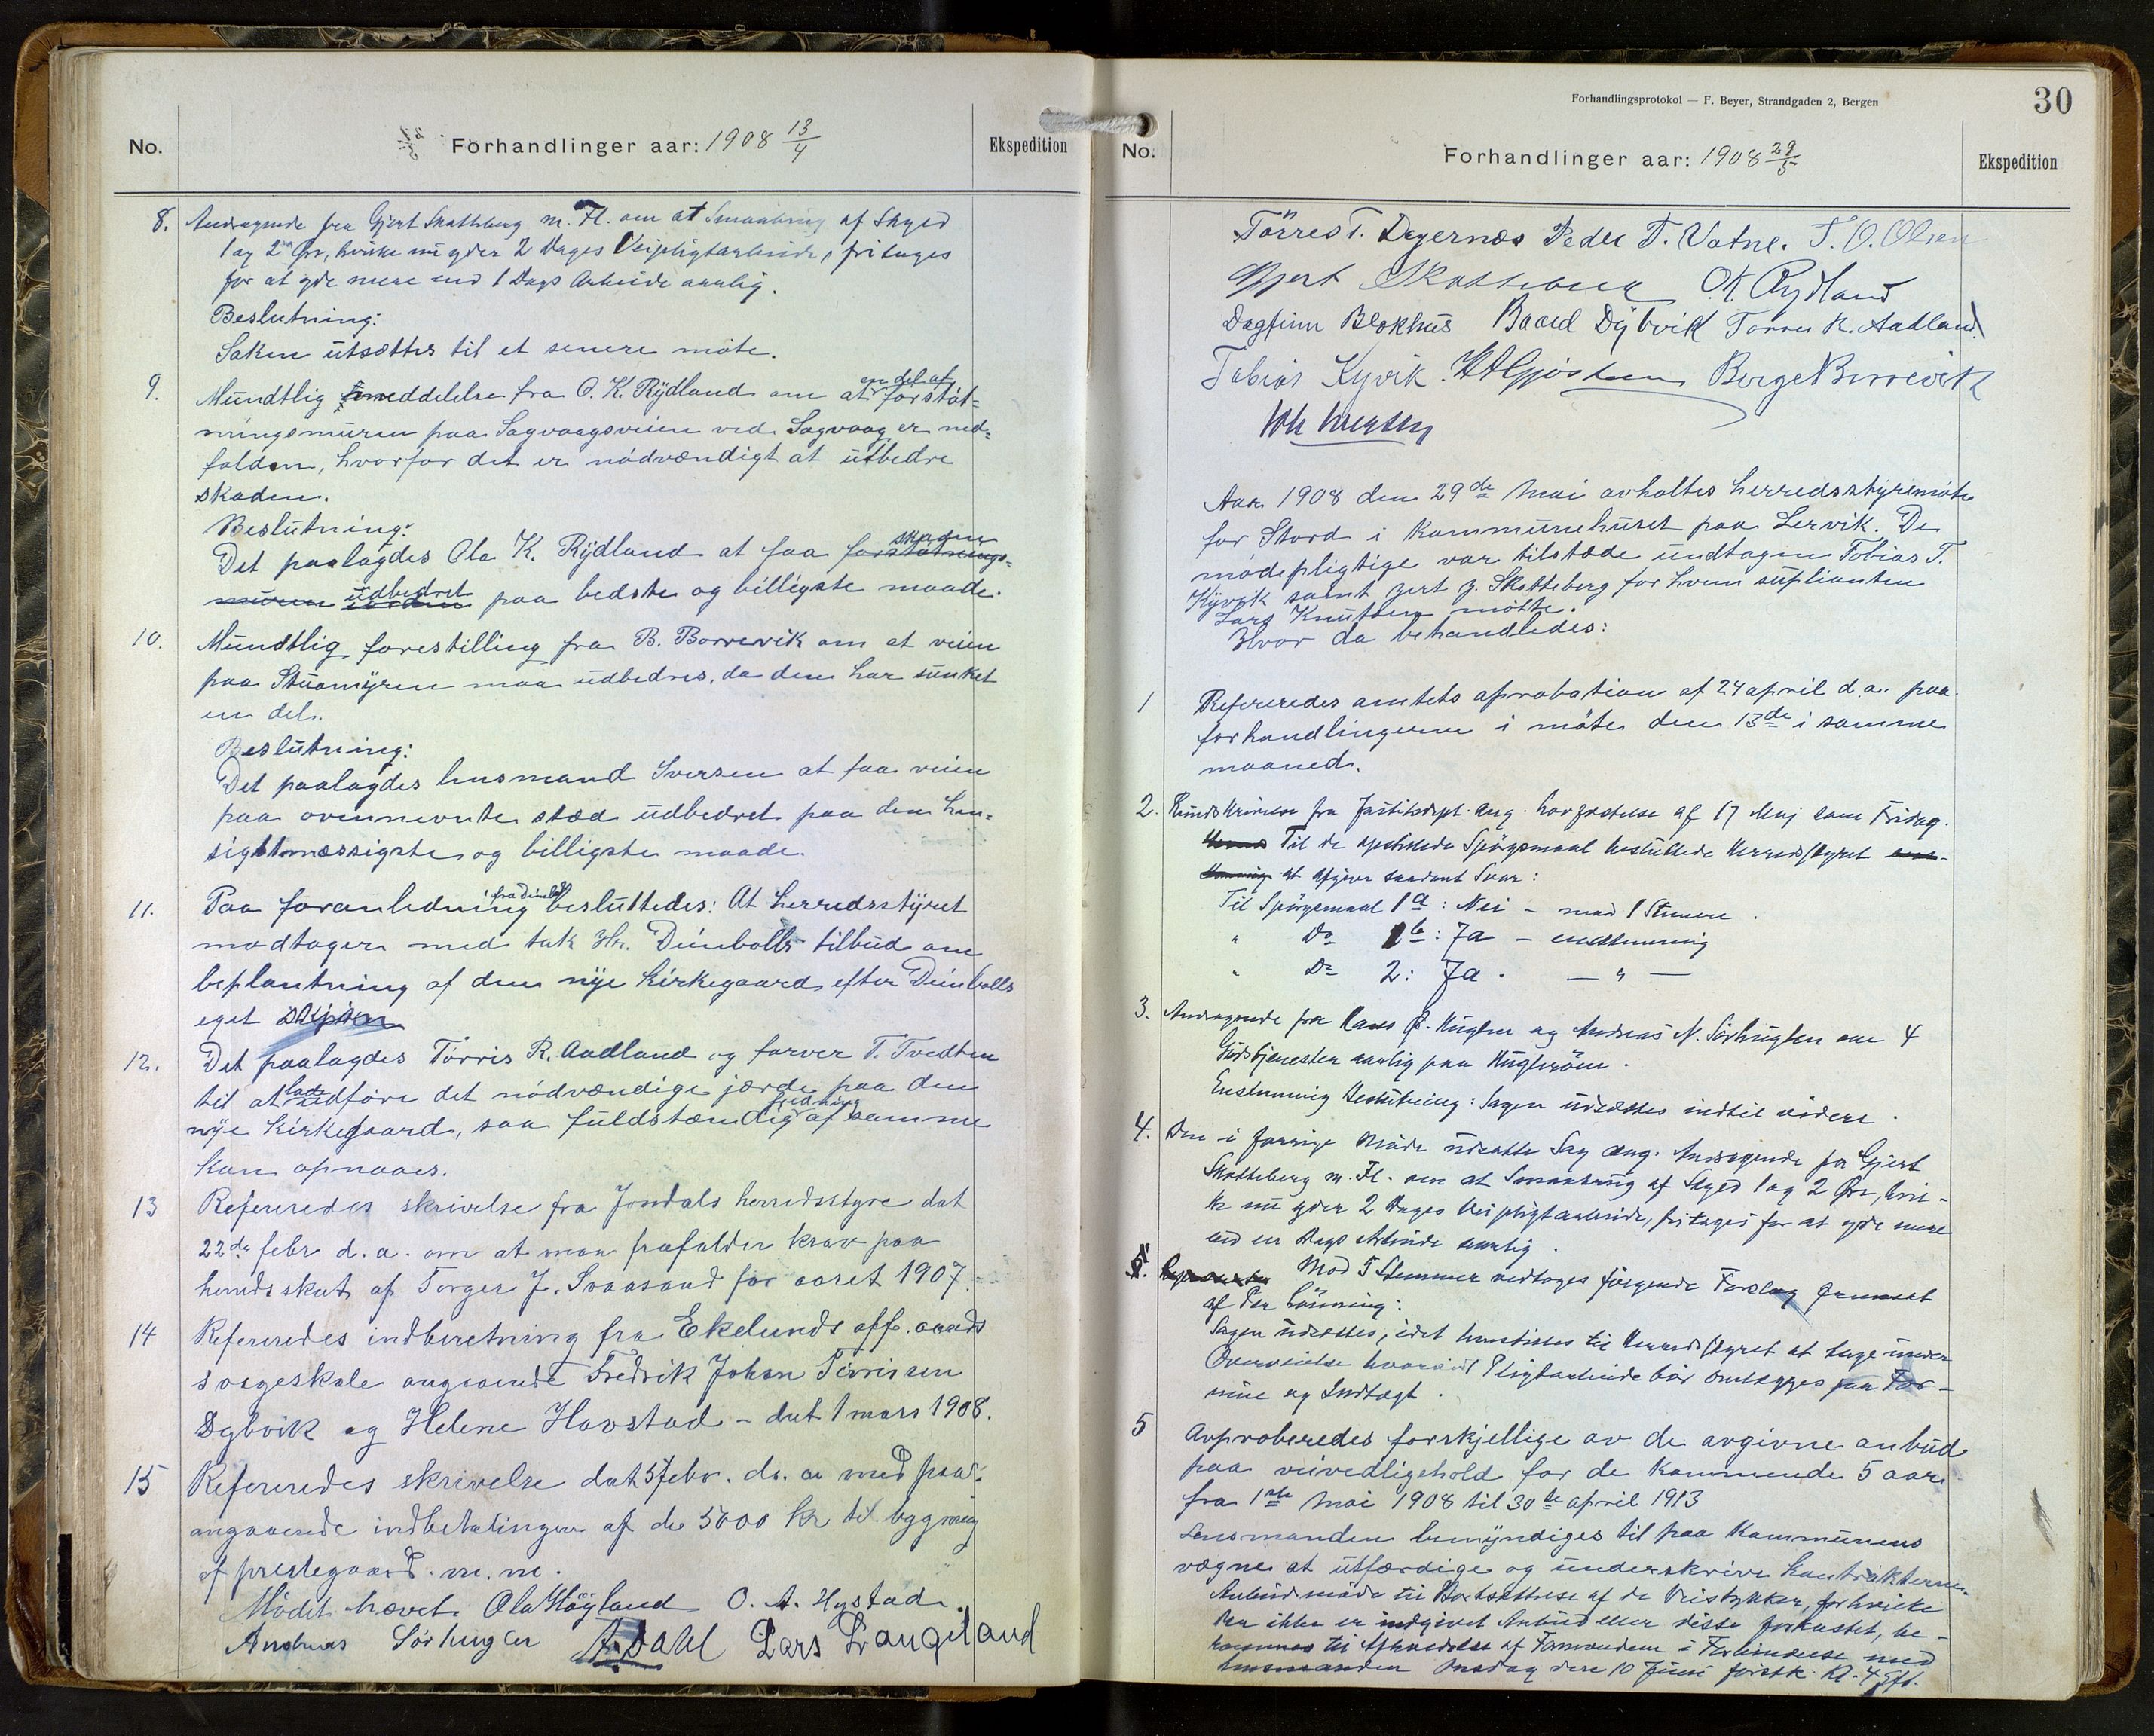 No.
Forhandlinger aar: 1908 13/4
Ekspedition
8. Andragende fra Gjert Skotteberg m. Fl. om at Smaabrug af Skyld
1 og 2 Øre, hvilke nu yder 2 Dages Veipligtarbeide, fritages
for at yde mere end 1 Dags Arbeide aarlig.
Beslutning:
Saken utsættes til et senere møte.
9. Mundtlig meddelelse fra O. K. Rydland om at en del af forstøt-
ningsmuren paa Sagvaagsveien ved Sagvaag er ned-
falden, hvorfor det er nødvændigt at utbedre
skaden.
Beslutning:
Det paalagdes Ola K. Rydland at faa forstøtnings- skaden
muren udbedret paa bedste og billigste maade.
10. Mundtlig forestilling fra B. Borrevik om at veien
paa Stuamyren maa udbedres, da den har sunket
en del.
Beslutning:
Det paalagdes lensmand Iversen at faa veien
paa ovennevnte stæd udbedret paa den hen-
sigtsmæssigste og billigste maade.
11. Paa foranledning fra Deinboll besluttedes: At herredsstyret
modtager med tak Hr. Deinbolls tilbud om
beplantning af den nye kirkegaard efter Deinbolls
eget skjøn
12. Det paalagdes Tørris R. Aadland og farver T. Tvedten
til at lade udføre det nødvændige jærde paa den
nye kirkegaard, saa fuldstændig fredning af samme
kan opnaaes.
13 Refereredes skrivelse fra Jondals herredsstyre dat
22de febr d. a. om at man frafalder krav paa
herredsskat af Torger J. Svaasand for aaret 1907.
14 Refereredes indberetning fra Ekelunds off. aands
svageskole angaaende Fredrik Johan Tørrisen
Dybvik og Helene Hovstad – dat 1 mars 1908.
15 Refereredes skrivelse dat 5 febr. d. a. med
angaaende indbetalingen af de 5000 kr til bygning
af prestegaard m. m.
Mødet hævet. Ola Høyland O. A. Hystad.
Andreas Sørhuglen A. Dahl Lars Langeland
Forhandlingsprotokol — F. Beyer, Strandgaden 2, Bergen
30
No.
Forhandlinger aar: 1908 29/5
Ekspedition
Tørres T. Digernes Peder T. Vatne. T. O. Olsen
Gjert Skotteberg O. K. Rydland
Dagfinn Blokhus Baard Dybvik Tørres R. Aadland
Tobias Kyvik. Børge Borrevik
Aar 1908 den 29de mai avholtes herredsstyremøte
for Stord i kommunehuset paa Lervik. De
mødepligtige var tilstæde undtagen Tobias T.
Kyvik samt Gert G. Skotteberg for hvem suplianten
Lars Knutsen møtte.
Hvor da behandledes:
1 Refereredes amtets aprobation af 24 april d.a. paa
forhandlingerne i møte den 13de i samme
maaned.
2. Rundskrivelse fra Justitsdept. ang. Høitideligholdelse af 17 Maj som Fridag.
Til de opstillede Spørgsmaal besluttede Herredsstyret
at afgive saadant Svar:
Til Spørgsmaal 1 a: Nei – mod 1 Stemme.
" Do 1 b: Ja – enstemmig
" Do 2: Ja. — " —
3. Andragende fra Hans Huglen og Andreas N. Sørhuglen om 4
Gudstjenester aarlig paa Huglen.
Enstemmig Beslutning: Sagen udsættes indtil videre.
4. Den i forrige Møde udsatte Sag ang. Andragende fra Gjert
Skotteberg m. Fl. om at Smaabrug af Skyld 1 og 2 Øre, hvil-
ke nu yder 2 Dages Veipligtarbeide, fritages for at yde mere
end en Dags Arbeide aarlig.
Mod 5 Stemmer vedtoges følgende Forslag fremsat
af Per Lønning:
Sagen udsættes, idet henstilles til Herredsstyret at tage under
Overveielse hvorvidt Pligtarbeide bør omlægges paa For-
mue og Indtægt.
5 Approberedes forskjellige av de avgivne anbud
paa veivedligehold for de kommende 5 aar
fra 1ste mai 1908 til 30te april 1913
Lensmanden bemyndiges til paa kommunens
vægne at utfærdige og underskrive kontrakterne.
Anbudsmøde til Bortsættelse af de Veistykker, for hvilke
der ikke er indgivet Anbud eller disse forkastet, be-
rammes til Afholdelse af Formanden i Forbindelse med
Lensmanden Onsdag den 10 Juni førstk. Kl. 4 Eft.